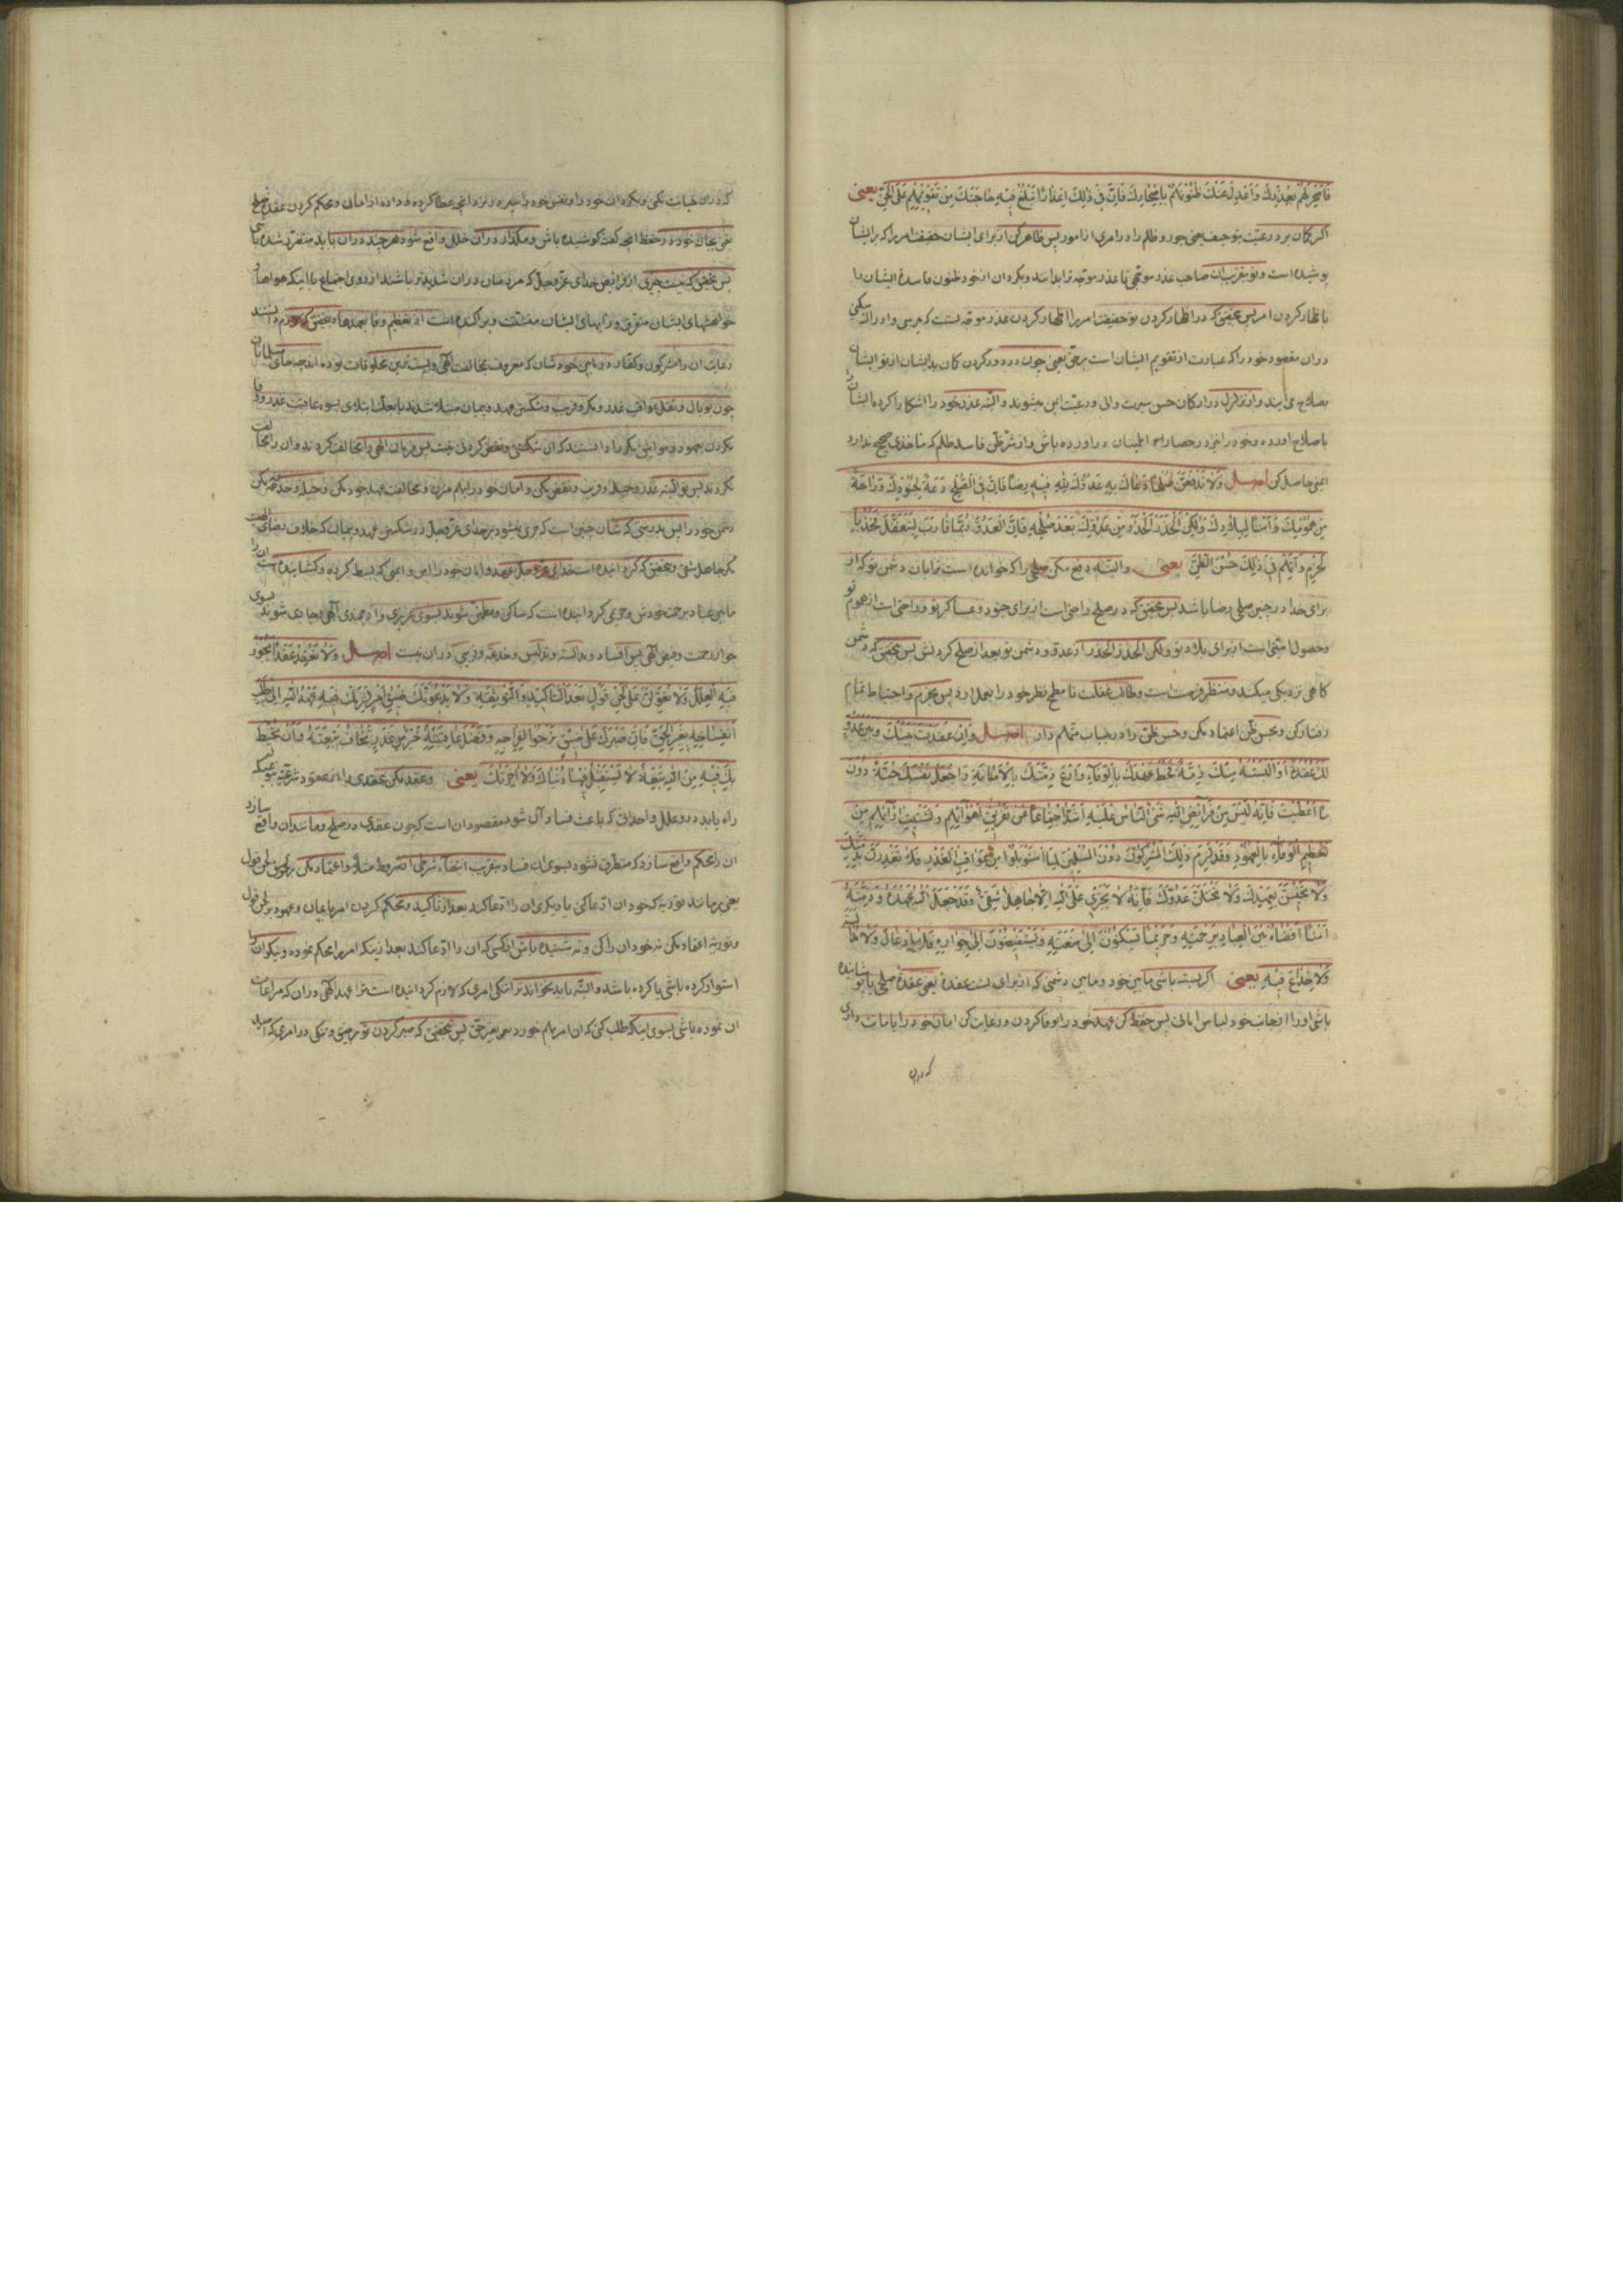 فَاَصْحِرْ لَهُمْ بِعُذْرِكَ وَ اَعْدِلْ عَنْكَ ظُنُوْنَهُمْ بِاِصْحَارِكَ فَاِنَّ فِیْ ذٰلِكَ اِعْذَارًا تَبْلُغُ فِیْهِ حَاجَتَكَ مِنْ تَقْوِیْمِهِمْ عَلَی الْحَقِّ یعنی
اکر کمان برد رعیّت بتو حیف یعنی جور و ظلم را در امری از امور پس ظاهر کن از برای ایشان حقیقت امر را که بر ایشان
پوشیده است و تو بتقریب ان صاحب عذر موجّهی تا عذر موجّه ترا بدانند و بکردان از خود ظنون فاسدهٔ ایشان را
باظهار کردن امر پس بتحقیق که در اظهار کردن تو حقیقت امر را اظهار کردن عذر موجّه تست که میرسی و ادراك میکنی
در ان مقصود خود را که عبارت از تقویم ایشان است بر حق یعنی چون دور کردن کمان بد ایشان از تو ایشان
بصلاح می ایند و از تزلزل در ارکان حسن سیرت والی و رعیّت ایمن میشوند و البتّه عذر خود را اشکارا کرده ایشان را
باصلاح اورده و خود را نیز در حصار اطمینان در اورده باش و از شرّ ظنّ فاسد ظلم که مناخذی صحیح ندارد
ایمنی حاصل کن اصـــل وَلَا تَدْفَعَنَّ صُلْحًا دَعَاكَ بِهِ عَدُوُّكَ لِلّٰهِ فِیْهِ رِضًا فَاِنَّ فِی الصُّلْحِ دَعَةً لِجُنُوْدِكَ وَ رَاحَةً
مِنْ هُمُوْمِكَ وَ اَمْنًا لِبِلَادِكَ وَلٰكِنِ الْحَذَرَ الْحَذَرَ مِنْ عَدُوِّكَ بَعْدَ صُلْحِهِ فَاِنَّ الْعَدُوَّ رُبَّمَا قَارَبَ لِیَتَغَفَّلَ فَخُذْ بِا
لْحَزْمِ وَ اتَّهِمْ فِیْ ذٰلِكَ حُسْنَ الظَّنِّ یعنی و البتّه دفع مکن صلحی را که خوانده است تو را بان دشمن تو که از
برای خدا در چنین صلحی رضا باشد پس بتحقیق که در صلح راحتی است از برای جنود و عساکر تو و راحتی است از هموم تو
و حصول امنیّتی است از برای بلاد تو ولکن الحذر الحذر از عدوّ و دشمن تو بعد از صلح کردنش پس بتحقیق که دشمن
کاهی نزدیکی میکند و منتظر فرصت است و طالب غفلت تا مطمح نظر خود را بعمل ارد پس بحزم و احتیاط تمام
رفتار کن و بحسن ظنّ اعتماد مکن و حسن ظنّ را در جناب متّهم دار اصـــل وَاِنْ عَقَدْتَ بَیْنَكَ وَ بَیْنَ عَدُوٍّ
لَكَ عُقْدَةً اَوْ اَلْبَسْتَهُ مِنْكَ ذِمَّةً فَحُطْ عَهْدَكَ بِالْوَفَاءِ وَارْعَ ذِمَّتَكَ بِالْاَمَانَةِ وَ اجْعَلْ نَفْسَكَ جُنَّةً دُوْنَ
مَا اَعْطَیْتَ فَاِنَّهُ لَیْسَ مِنْ فَرَائِضِ اللّٰهِ شَیْءٌ النَّاسُ عَلَیْهِ اَشَدُّ اجْتِمَاعًا مِنْ تَفْرِیْقِ اَهْوَائِهِمْ وَ تَشْتِیْتِ اٰرَائِهِمْ مِنْ
تَعْظِیْمِ الْوَفَاءِ بِالْعُهُوْدِ وَ قَدْ لَزِمَ ذٰلِكَ الْمُشْرِكُوْنَ دُوْنَ الْمُسْلِمِیْنَ لِمَا اسْتَوْبَلُوْا مِنْ عَوَاقِبِ الْغَدْرِ فَلَا تَغْدِرَنَّ بِذِمَّتِكَ
وَلَا تَخِیْسَنَّ بِعَهْدِكَ وَلَا تَخْتِلَنَّ عَدُوَّكَ فَاِنَّهُ لَا یَجْتَرِئُ عَلَی اللّٰهِ اِلَّا جَاهِلٌ شَقِیٌّ وَقَدْ جَعَلَ اللّٰهُ عَهْدَهُ وَ ذِمَّتَهُ
اَمْنًا اَفْضَاهُ بَیْنَ الْعِبَادِ بِرَحْمَتِهِ وَ حَرِیْمًا یَسْكُنُوْنَ اِلٰی مَنَعَتِهِ وَ یَسْتَفِیْضُوْنَ اِلٰی جِوَارِهِ فَلَا اِدْغَالَ وَلَا مُدَالَسَةَ
وَلَا خِدَاعَ فِیْهِ یعنی اکر بسته باشی مابین خود و مابین دشمنی که از برای تست عقدهٔ یعنی عقدهٔ صلحی یا پوشانیده
باشی او را از جانب خود لباس امانی پس حفظ کن عهد خود را بوفا کردن و رعایت کن امان خود را بامانت داری
که در ان
که در ان خیانت نکنی و بکردان خود را و نفس خود را سپر در نزد انچه عطا کرده و داده از امان و محکم کردن عقد صلح
یعنی بجان خود در حفظ انچه کفت کوشیده باش و مکذار در ان خلل واقع شود هر چند در ان باید متضرّر شده باشی
پس بتحقیق که نیست چیزی از فرایض خدای عزّوجلّ که مردمان در ان شدیدتر باشند از روی اجتماع با اینکه هواها و
خواهشهای ایشان متفرّق و رایهای ایشان متشتّت و پراکنده است از تعظیم وفا بعهدها و بتحقیق که لازم دانستند
رعایت ان را مشرکون و کفّار در مابین خودشان که معروف بمخالفت الهی و پست ترین مخلوقات بوده اند چه جای مسلمانان
چون وبال و ثقل عواقب غدر و مکر و فریب و شکستن عهد و پیمان مبتلا شدند بابتلای بسوء عاقبت غدر و وفا
نکردن عهود و مواثیق یکدیکر دانستند که ان شکستن و نقض کردن چیست پس فرمان الهی را مخالفت کردند و ان را مخالفت
نکردند پس تو البتّه غدر و حیله و فریب و نقض مکن و امان خود را برهم مزن و مخالفت عهد خود مکن و حیله و خدعه مکن
دشمن خود را پس بدرستی که شان چنین است که جری نمیشود بر خدای عزّوجلّ در شکستن عهد و پیمان که خلاف رضای الهی است
مکر جاهل شقی و بتحقیق که کردانیده است خدای عزّوجلّ عهد و امان خود را امن و ایمنی که بسط کرده و کشاینده است ان را
مابین عباد برحمت خودش و حریمی کردانیده است که ساکن و مطمئن شوند بسوی عزیزی و ارجمندی الهی و جاری شوند بسوی
جوار رحمت و فیض الهی پس افساد و مدالسه و تدلیس و خدعه و فریبی در ان نیست اصـــل وَلَا تَعْقِدْ عَقْدًا تَجُوْزُ
فِیْهِ الْعِلَلُ وَلَا تُعَوِّلَنَّ عَلٰی لَحْنِ قَوْلٍ بَعْدَ التَّاْكِیْدِ وَ التَّوْثِقَةِ وَلَا یَدْعُوَنَّكَ ضِیْقُ اَمْرٍ لَزِمَكَ فِیْهِ عَهْدُ اللّٰهِ اِلٰی طَلَبِ
انْفِسَاخِهِ بِغَیْرِ الْحَقِّ فَاِنَّ صَبْرَكَ عَلٰی ضِیْقٍ تَرْجُوْا انْفِرَاجَهُ وَ فَضْلَ عَاقِبَتِهِ خَیْرٌ مِنْ غَدْرٍ تَخَافُ تَبِعَتَهُ وَ اَنْ تُحِیْطَ
بِكَ فِیْهِ مِنَ اللّٰهِ طَلِبَةٌ لَا تَسْتَقْبِلُ فِیْهَا دُنْیَاكَ وَلَا اٰخِرَتَكَ یعنی و عقد مکن عقدی را از عقود شرعیّه بنحویکه
راه یابد در و علل و احداثی که باعث فساد آن شود مقصود ان است که چون عقدی در صلح و مانند ان واقع سازد
ان را محکم واقع سازد که متطرّق نشود بسوی ان فساد بتقریب انتفاء شرطی از شروط مثلاً و اعتماد مکن بر لحن قول
یعنی بر مانند توریه که خود ان ادّعا کنی یا دیکری ان را ادّعا کند بعد از تاکید و محکم کردن امر پیمان و عهود بر لحن قول
و توریه اعتماد مکن نه خود ان را کن و نه شنیده باش از کسی که ان را ادّعا کند بعد از ینکه امر را محکم نموده و نیکو ان را
استوار کرده باشی یا کرده باشد و البتّه باید نخواند ترا تنکی امری که لازم کردانیده است ترا عهد الهی در ان که مراعات
ان نموده باشی بسوی اینکه طلب کنی که ان امر بهم خورد بغیر حق پس بتحقیق که صبر کردن تو بر ضیق و تنکی در امری که امید